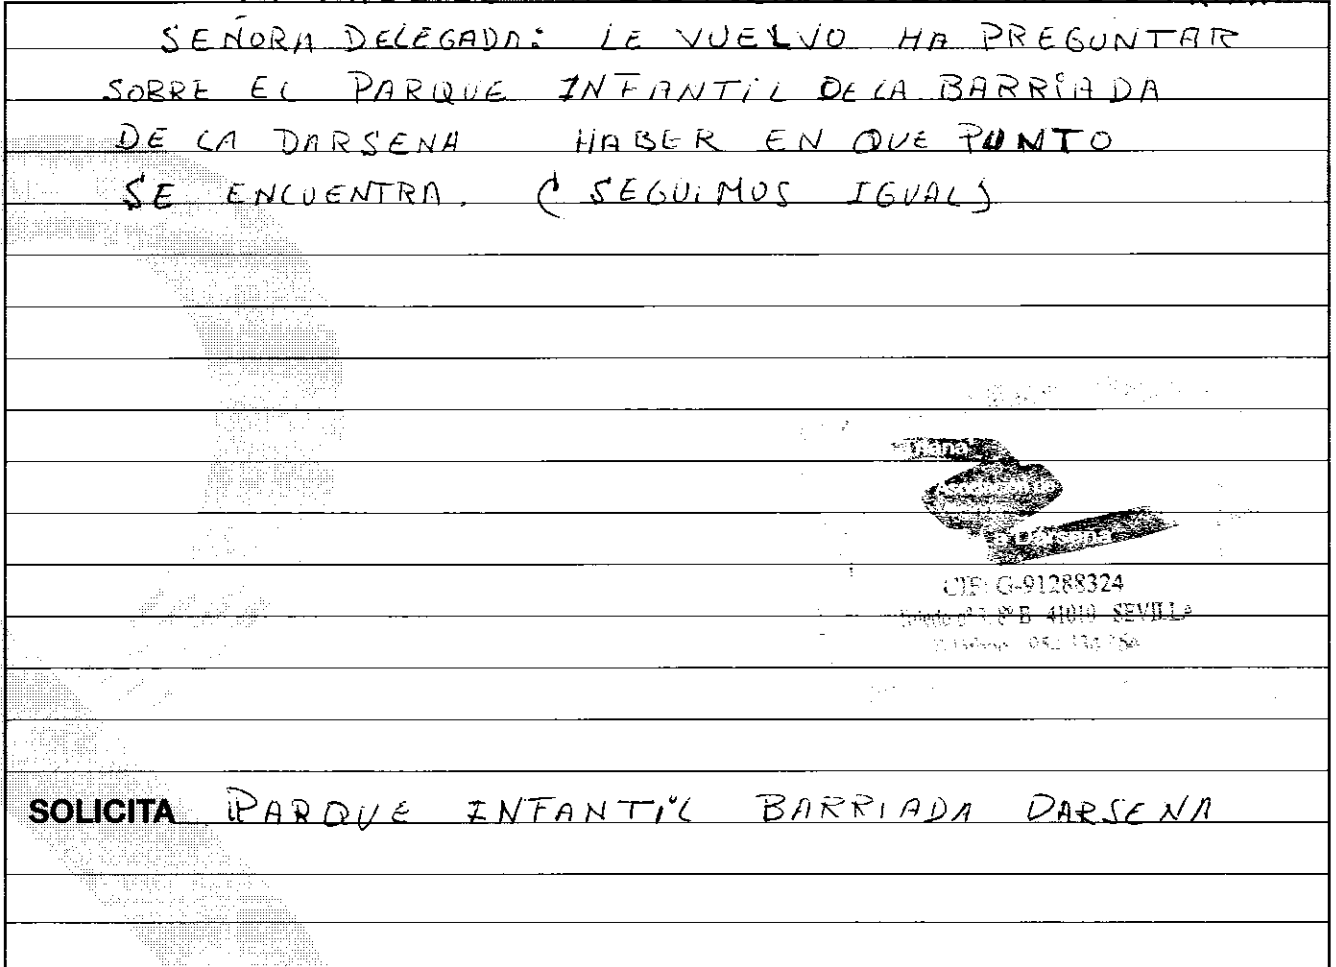 SEÑORA DELEGADA: LE VUELVO HA PREGUNTAR
SOBRE EL PARQUE INFANTIL DE LA BARRIADA
DE LA DARSENA HABER EN QUE PUNTO
SE ENCUENTRA. (SEGUIMOS IGUAL)
Triana
Asociación de
La Dársena
CIF: G-91288324
B 41010 SEVILLA
SOLICITA PARQUE INFANTIL BARRIADA DARSENA